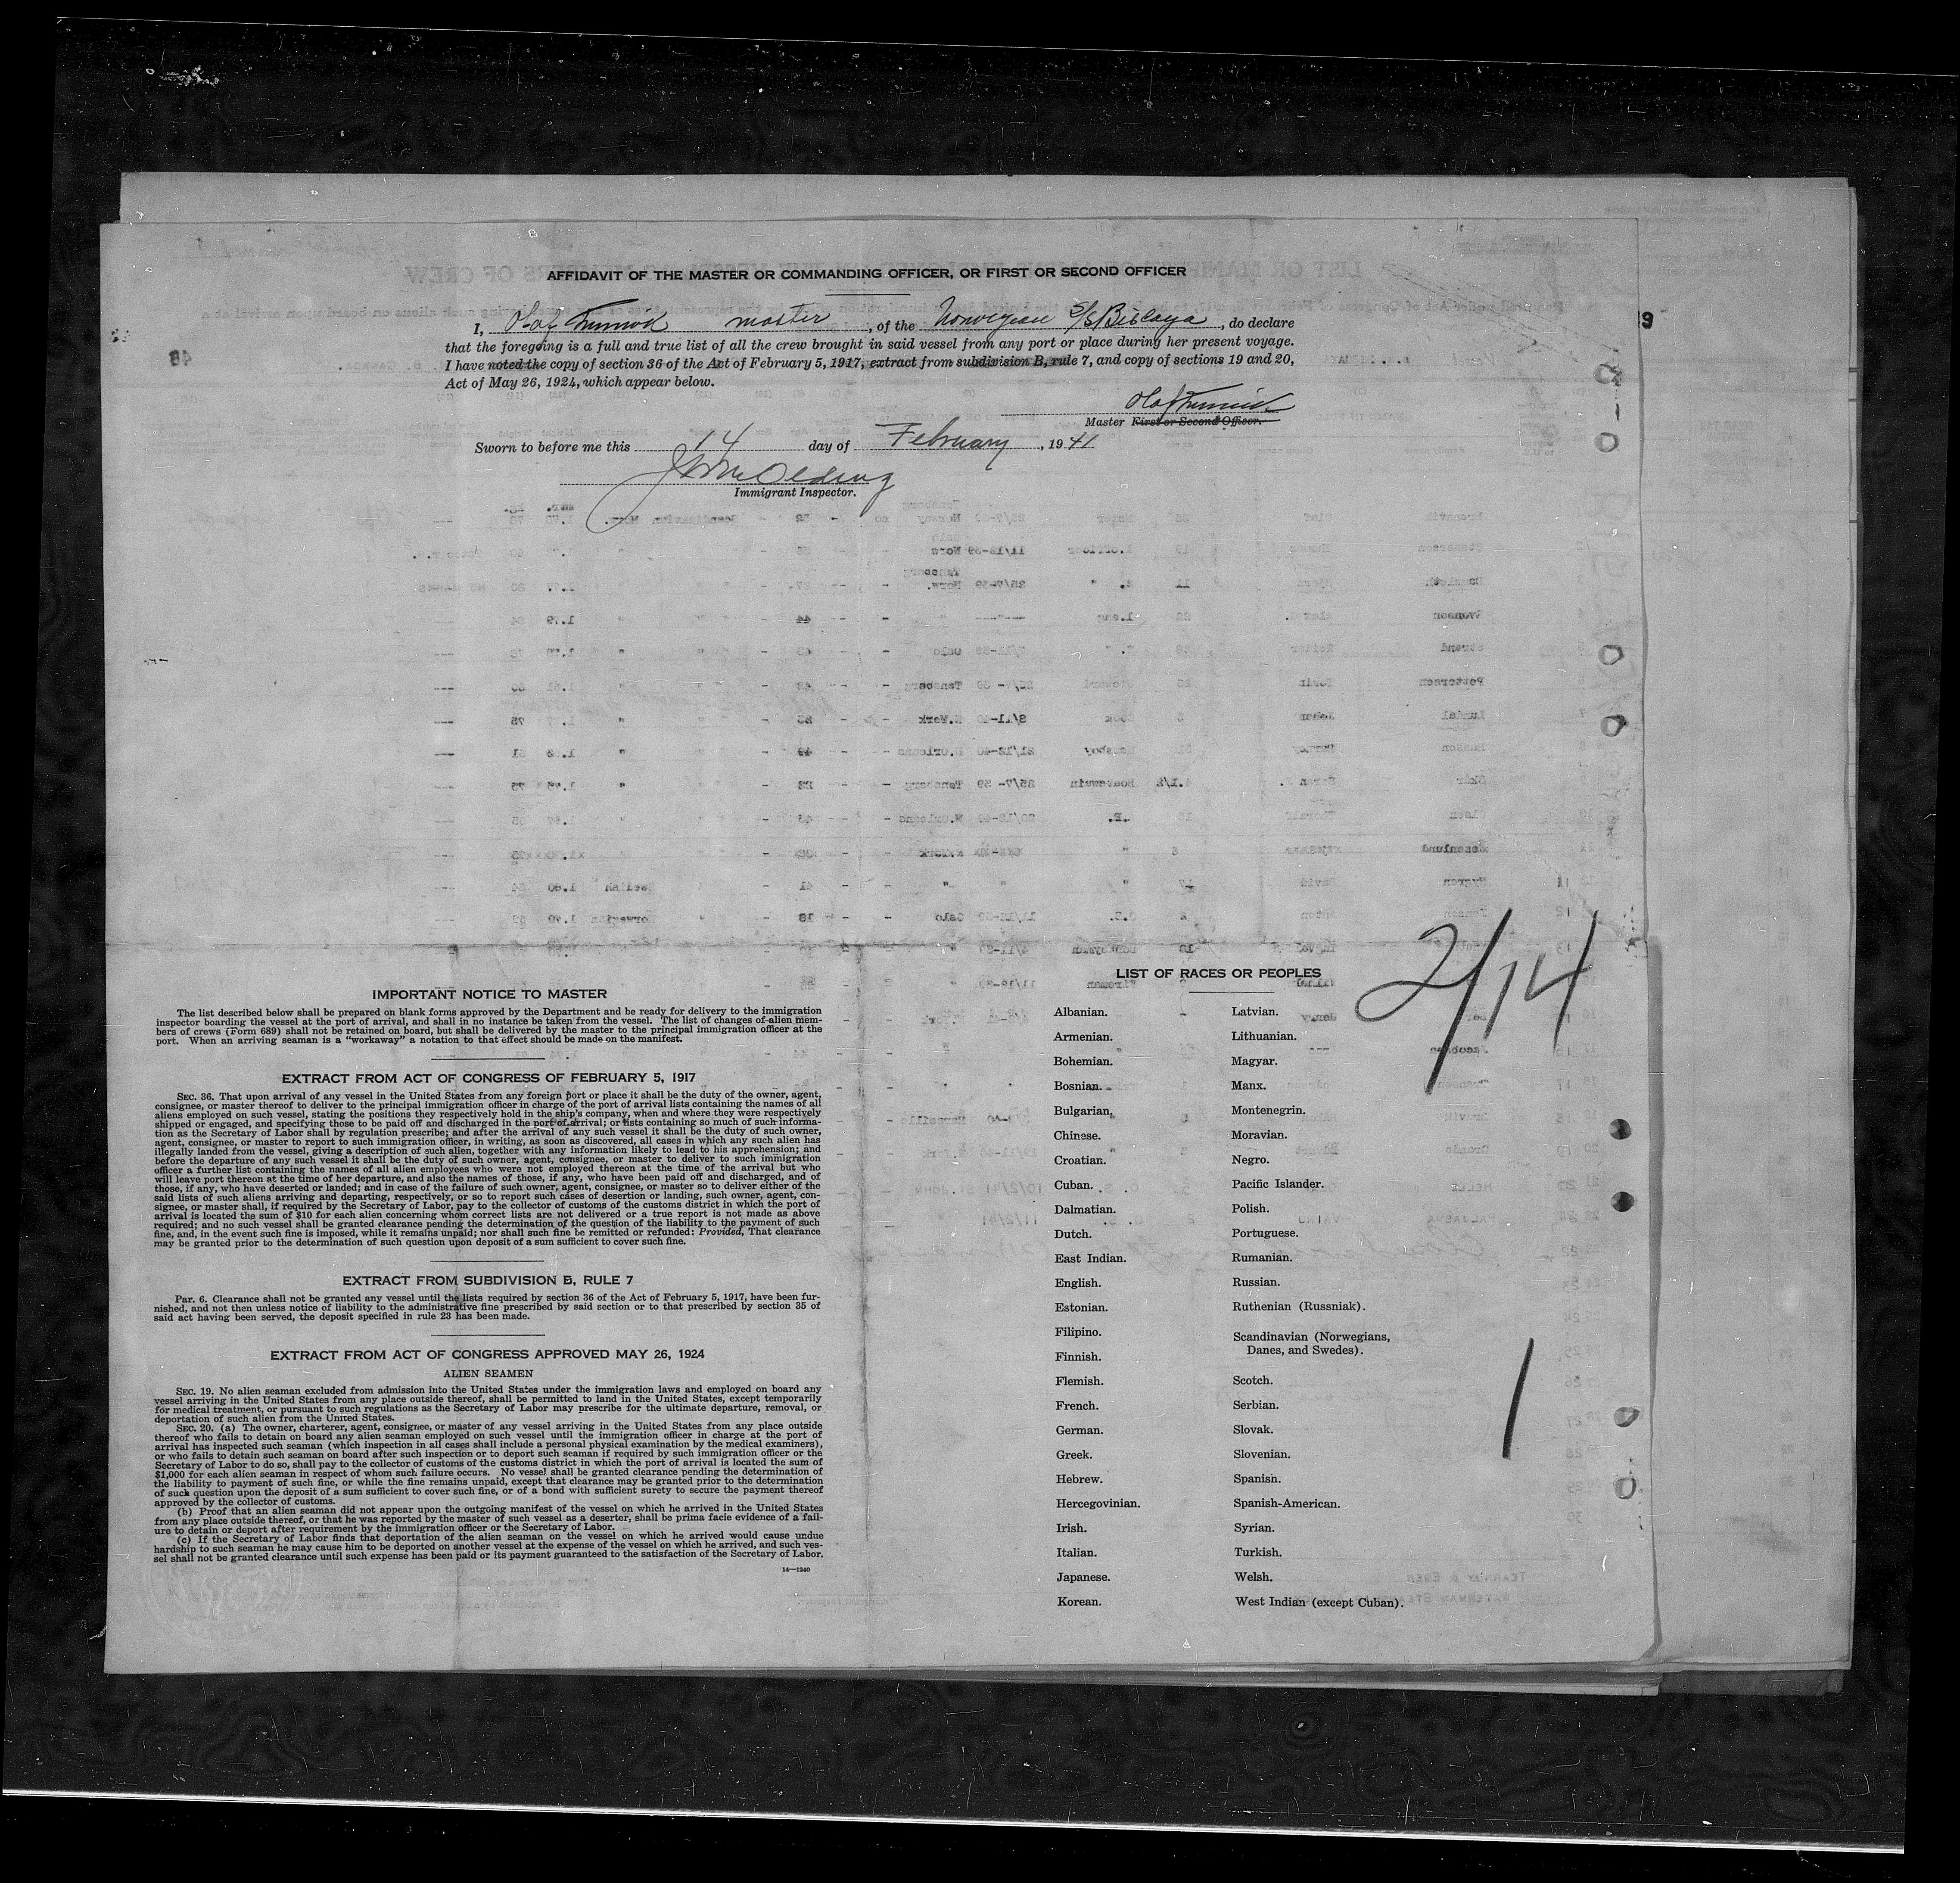 AFFIDAVIT OF THE MASTER OR COMMANDING OFFICER, OR FIRST OR SECOND OFFICER
I, Olaf master, of the Norwegian S/S Biscaya, do declare
that the foregoing is a full and true list of all the crew brought in said vessel from any port or place during her present voyage.
I have noted the copy of section 36 of the Act of February 5, 1917, extract from subdivision B, rule 7, and copy of sections 19 and 20,
Act of May 26, 1924, which appear below.
Olaf
Master First or Second Officer.
Sworn to before me this 14 day of February, 1941
Immigrant Inspector.
2/14
IMPORTANT NOTICE TO MASTER
The list described below shall be prepared on blank forms approved by the Department and be ready for delivery to the immigration
inspector boarding the vessel at the port of arrival, and shall in no instance be taken from the vessel. The list of changes of alien mem-
bers of crews (Form 689) shall not be retained on board, but shall be delivered by the master to the principal immigration officer at the
port. When an arriving seaman is a "workaway" a notation to that effect should be made on the manifest.
EXTRACT FROM ACT OF CONGRESS OF FEBRUARY 5, 1917
SEC. 36. That upon arrival of any vessel in the United States from any foreign port or place it shall be the duty of the owner, agent,
consignee, or master thereof to deliver to the principal immigration officer in charge of the port of arrival lists containing the names of all
aliens employed on such vessel, stating the positions they respectively hold in the ship's company, when and where they were respectively
shipped or engaged, and specifying those to be paid off and discharged in the port of arrival; or lists containing so much of such informa-
tion as the Secretary of Labor shall by regulation prescribe; and after the arrival of any such vessel it shall be the duty of such owner,
agent, consignee, or master to report to such immigration officer, in writing, as soon as discovered, all cases in which any such alien has
illegally landed from the vessel, giving a description of such alien, together with any information likely to lead to his apprehension; and
before the departure of any such vessel it shall be the duty of such owner, agent, consignee, or master to deliver to such immigration
officer a further list containing the names of all alien employees who were not employed thereon at the time of the arrival but who
will leave port thereon at the time of her departure, and also the names of those, if any, who have been paid off and discharged, and of
those, if any, who have deserted or landed; and in case of the failure of such owner, agent, consignee, or master so to deliver either of the
said lists of such aliens arriving and departing, respectively, or so to report such cases of desertion or landing, such owner, agent, con-
signee, or master shall, if required by the Secretary of Labor, pay to the collector of customs of the customs district in which the port of
arrival is located the sum of $10 for each alien concerning whom correct lists are not delivered or a true report is not made as above
required; and no such vessel shall be granted clearance pending the determination of the question of the liability to the payment of such
fine, and, in the event such fine is imposed, while it remains unpaid; nor shall such fine be remitted or refunded: Provided, That clearance
may be granted prior to the determination of such question upon deposit of a sum sufficient to cover such fine.
EXTRACT FROM SUBDIVISION B, RULE 7
PAR. 6. Clearance shall not be granted any vessel until the lists required by section 36 of the Act of February 5, 1917, have been fur-
nished, and not then unless notice of liability to the administrative fine prescribed by said section or to that prescribed by section 35 of
said act having been served, the deposit specified in rule 23 has been made.
EXTRACT FROM ACT OF CONGRESS APPROVED MAY 26, 1924
ALIEN SEAMEN
SEC. 19. No alien seaman excluded from admission into the United States under the immigration laws and employed on board any
vessel arriving in the United States from any place outside thereof, shall be permitted to land in the United States, except temporarily
for medical treatment, or pursuant to such regulations as the Secretary of Labor may prescribe for the ultimate departure, removal, or
deportation of such alien from the United States.
SEC. 20. (a) The owner, charterer, agent, consignee, or master of any vessel arriving in the United States from any place outside
thereof who fails to detain on board any alien seaman employed on such vessel until the immigration officer in charge at the port of
arrival has inspected such seaman (which inspection in all cases shall include a personal physical examination by the medical examiners),
or who fails to detain such seaman on board after such inspection or to deport such seaman if required by such immigration officer or the
Secretary of Labor to do so, shall pay to the collector of customs of the customs district in which the port of arrival is located the sum of
$1,000 for each alien seaman in respect of whom such failure occurs. No vessel shall be granted clearance pending the determination of
the liability to payment of such fine, or while the fine remains unpaid, except that clearance may be granted prior to the determination
of such question upon the deposit of a sum sufficient to cover such fine, or of a bond with sufficient surety to secure the payment thereof
approved by the collector of customs.
(b) Proof that an alien seaman did not appear upon the outgoing manifest of the vessel on which he arrived in the United States
from any place outside thereof, or that he was reported by the master of such vessel as a deserter, shall be prima facie evidence of a fail-
ure to detain or deport after requirement by the immigration officer or the Secretary of Labor.
(c) If the Secretary of Labor finds that deportation of the alien seaman on the vessel on which he arrived would cause undue
hardship to such seaman he may cause him to be deported on another vessel at the expense of the vessel on which he arrived, and such ves-
sel shall not be granted clearance until such expense has been paid or its payment guaranteed to the satisfaction of the Secretary of Labor.
14—1240
LIST OF RACES OR PEOPLES
Albanian.
Armenian.
Bohemian.
Bosnian.
Bulgarian.
Chinese.
Croatian.
Cuban.
Dalmatian.
Dutch.
East Indian.
English.
Estonian.
Filipino.
Finnish.
Flemish.
French.
German.
Greek.
Hebrew.
Hercegovinian.
Irish.
Italian.
Japanese.
Korean.
Latvian.
Lithuanian.
Magyar.
Manx.
Montenegrin.
Moravian.
Negro.
Pacific Islander.
Polish.
Portuguese.
Rumanian.
Russian.
Ruthenian (Russniak).
Scandinavian (Norwegians,
Danes, and Swedes).
Scotch.
Serbian.
Slovak.
Slovenian.
Spanish.
Spanish-American.
Syrian.
Turkish.
Welsh.
West Indian (except Cuban).
1